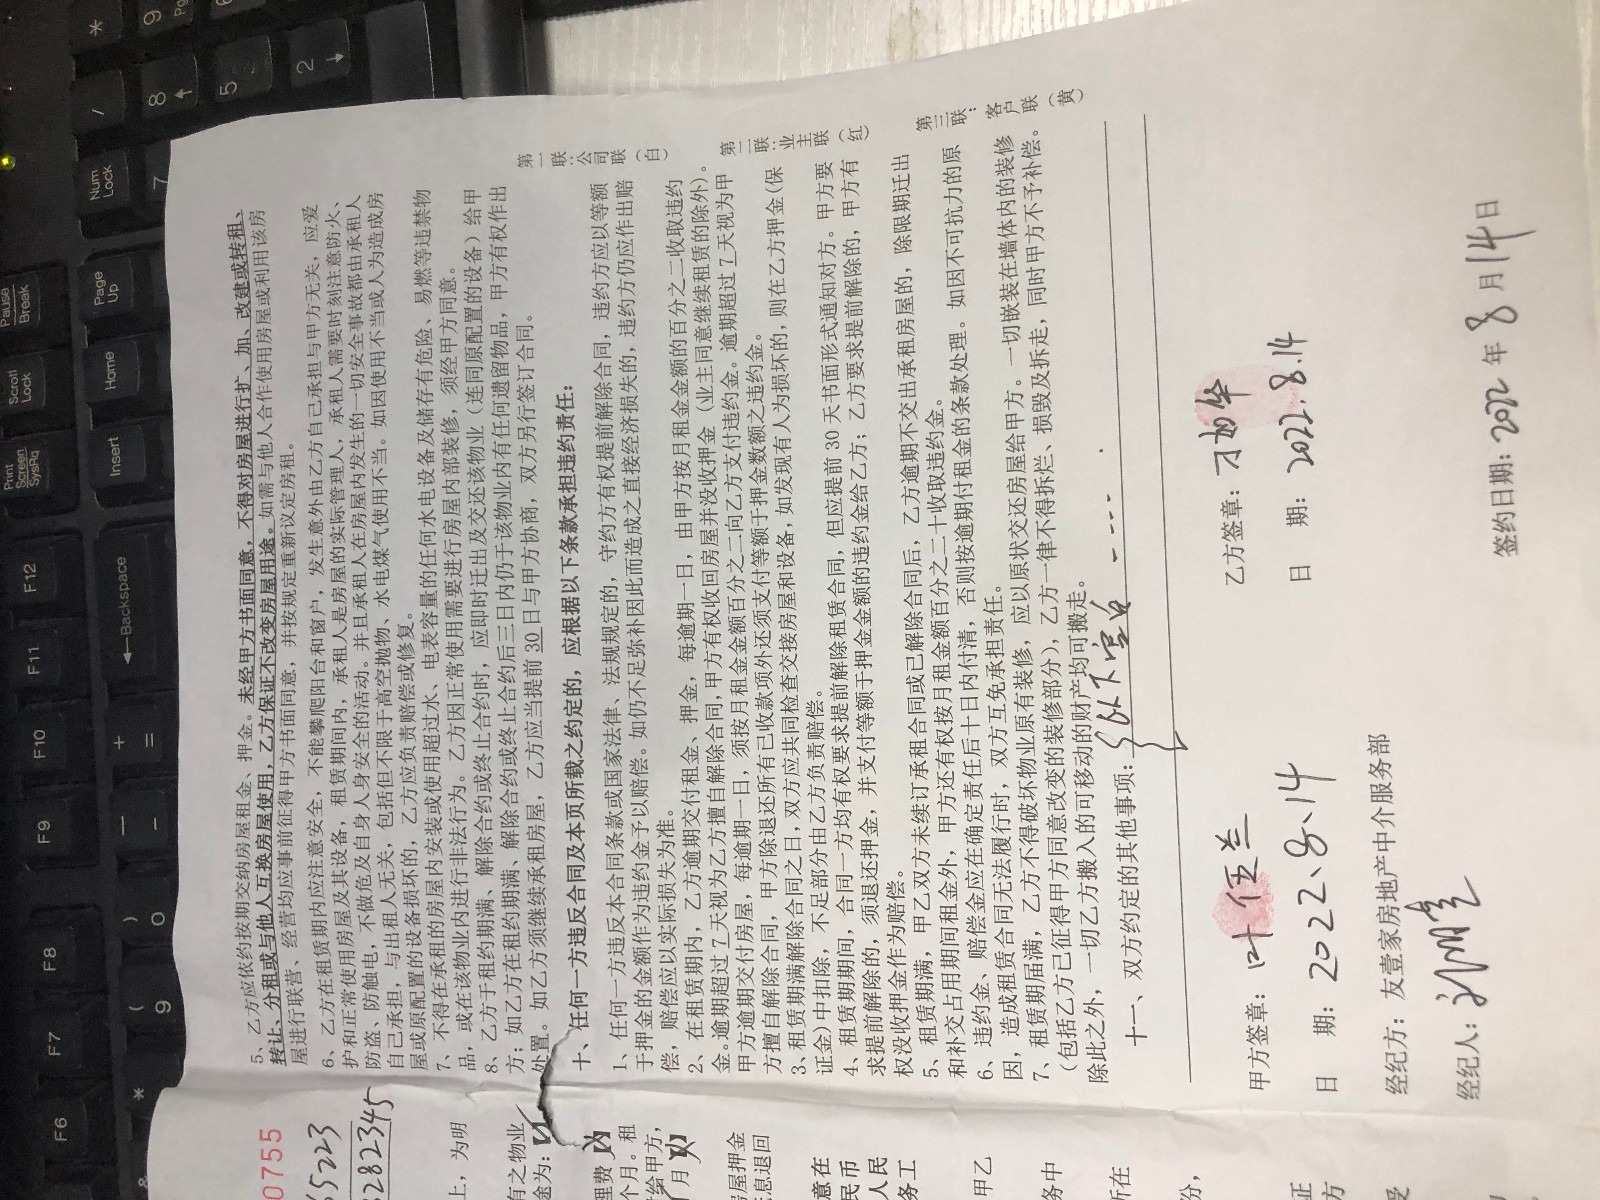 5、乙方应依约按期交纳房屋租金、押金。未经甲方书面同意，不得对房屋进行扩、加、改建或转租、
转让、分租或与他人互换房屋使用，乙方保证不改变房屋用途。如需与他人合作使用房屋或利用该房
屋进行联营、经营均应事前征得甲方书面同意，并按规定重新议定房租。
6、乙方在租赁期内应注意安全，不能攀爬阳台和窗户，发生意外由乙方自己承担与甲方无关，应爱
护和正常使用房屋及其设备，租赁期间内，承租人是房屋的实际管理人，承租人需要时刻注意防火、
防盗、防触电，不做危及自身人身安全的活动。并且承租人在房屋内发生的一切安全事故都由承租人
自己承担，与出租人无关，包括但不限于高空抛物、水电煤气使用不当。如因使用不当或人为造成房
屋或原配置的设备损坏的，乙方应负责赔偿或修复。
7、不得在承租的房屋内安装或使用超过水、电表容量的任何水电设备及储存有危险、易燃等违禁物
品，或在该物业内进行非法行为。乙方因正常使用需要进行房屋内部装修，须经甲方同意。
8、乙方于租约期满、解除合约或终止合约时，应即时迁出及交还该物业（连同原配置的设备）给甲
方；如乙方在租约期满、解除合约或终止合约后三日内仍于该物业内有任何遗留物品，甲方有权作出
处置。如乙方须继续承租房屋，乙方应当提前 30 日与甲方协商，双方另行签订合同。
十、任何一方违反合同及本页所载之约定的，应根据以下条款承担违约责任：
1、任何一方违反本合同条款或国家法律、法规规定的，守约方有权提前解除合同，违约方应以等额
于押金的金额作为违约金予以赔偿。如仍不足弥补因此而造成之直接经济损失的，违约方仍应作出赔
偿，赔偿应以实际损失为准。
2、在租赁期内，乙方逾期交付租金、押金，每逾期一日，由甲方按月租金金额的百分之二收取违约
金。逾期超过 7 天视为乙方擅自解除合同，甲方有权收回房屋并没收押金（业主同意继续租赁的除外）。
甲方逾期交付房屋，每逾期一日，须按月租金金额百分之二向乙方支付违约金。逾期超过 7 天视为甲
方擅自解除合同，甲方除退还所有已收款项外还须支付等额于押金数额之违约金。
3、租赁期满解除合同之日，双方应共同检查交接房屋和设备，如发现有人为损坏的，则在乙方押金（保
证金）中扣除，不足部分由乙方负责赔偿。
4、租赁期期间，合同一方均有权要求提前解除租赁合同，但应提前 30 天书面形式通知对方。甲方要
求提前解除的，须退还押金，并支付等额于押金金额的违约金给乙方；乙方要求提前解除的，甲方有
权没收押金作为赔偿。
5、租赁期满，甲乙双方未续订承租合同或已解除合同后，乙方逾期不交出承租房屋的，除限期迁出
和补交占用期间租金外，甲方还有权按月租金额百分之二十收取违约金。
6、违约金、赔偿金应在确定责任后十日内付清，否则按逾期付租金的条款处理。如因不可抗力的原
因，造成租赁合同无法履行时，双方互免承担责任。
7、租赁期届满，乙方不得破坏物业原有装修，应以原状交还房屋给甲方。一切嵌装在墙体内的装修
（包括乙方已征得甲方同意改变的装修部分），乙方一律不得拆烂、损毁及拆走，同时甲方不予补偿。
除此之外，一切乙方搬入的可移动的财产均可搬走。
十一、双方约定的其他事项：以下空白
甲方签章：叶伍兰
乙方签章：
日 期：2022.8.14
日 期：2022.8.14
经纪方：友壹家房地产中介服务部
经纪人：
签约日期：2022 年 8 月 14 日
第一联：公司联（白）
第二联：业主联（红）
第三联：客户联（黄）
0755
65223
8282345
上，为明
有之物业
途为：
理费
个月。租
给甲方，
月
房屋押金
息退回
意在
民币
人民
务工
甲乙
务中
所在
份，
证
方
受
Print Screen SysRq
Scroll Lock
Pause Break
Insert
Home
Page Up
Num Lock
/
*
7
8
9
5
2
F6
F7
F8
F9
F10
F11
F12
←Backspace
*
(
9
)
0
—
-
+
=
&